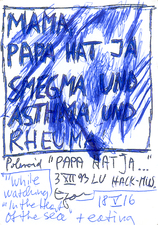 MAMA,
PAPA HAT JA
SMEGMA UND
ASTHMA UND
RHEUMA
Polaroid "PAPA HAT JA..."
3 XII 95 LU HACK-MUS.
"while
watching
"In the Heart
of the sea"
18 V 16
+ eating